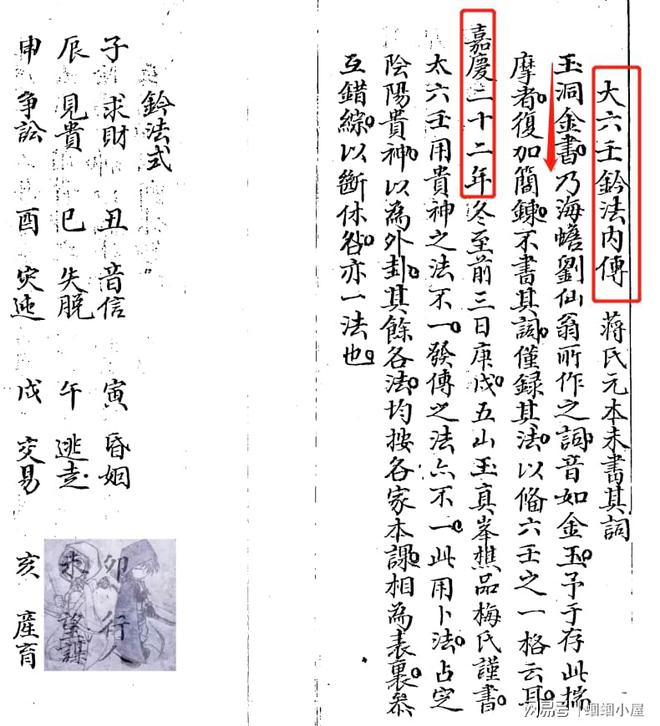 大六壬鈐法內傳 蔣氏元本未書其詞
玉洞金書乃海蟾劉仙翁所作之詞音如金玉予于存此揣
摩者復加簡鍊不書其詞僅録其法以俻六壬之一格云耳
嘉慶二十二年冬至前三日庚戌五山玉真峯樵品梅氏謹書
太六壬用貴神之法不一發傳之法亦不一此用卜法占定
陰陽貴神以為外卦其餘各法均按各家本課相為表裏參
互錯綜以斷休咎亦一法也
鈐法式
子 求財 丑 音信 寅 昏姻 卯 行人
辰 見貴 巳 失脫 午 逃走 未 望謀
申 爭訟 酉 灾迍 戌 交易 亥 産育
网易号 | 蝈蝈小屋